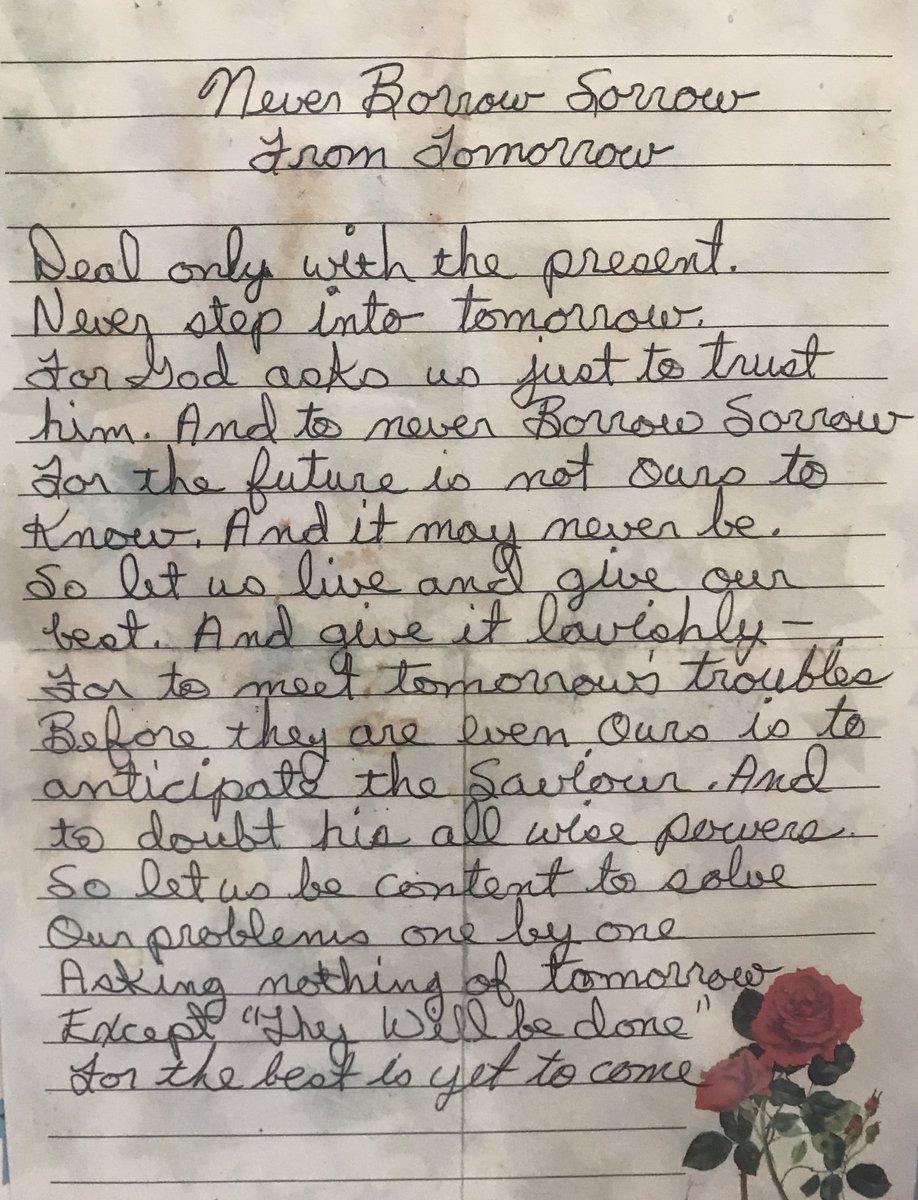 Never Borrow Sorrow
From Tomorrow
Deal only with the present.
Never step into tomorrow.
For God asks us just to trust
him. And to never Borrow Sorrow
For the future is not Ours to
Know. And it may never be.
So let us live and give our
best. And give it lavishly -
For to meet tomorrow's troubles
Before they are even Ours is to
anticipate the Saviour. And
to doubt his all wise powers.
So let us be content to solve
Our problems one by one
Asking nothing of tomorrow
Except "Thy Will be done"
For the best is yet to come